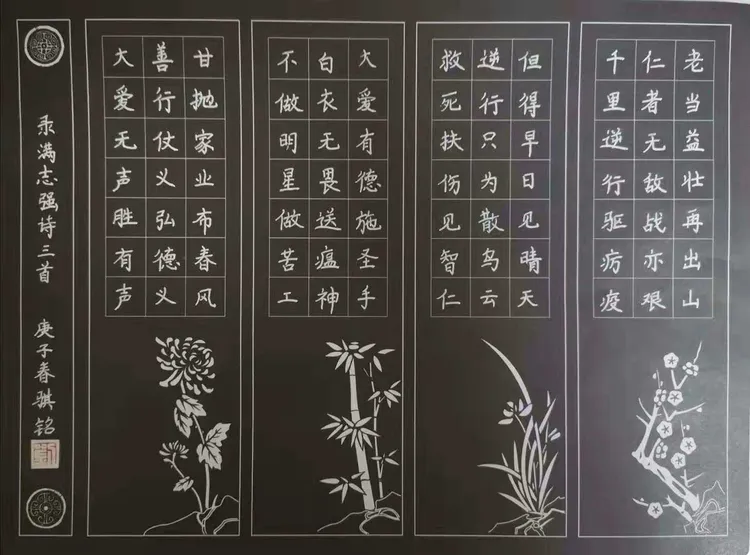 老当益壮再出山
仁者无敌战亦艰
千里逆行驱疠疫
但得早日见晴天
逆行只为散鸟云
救死扶伤见智仁
大爱有德施圣手
白衣无畏送瘟神
不做明星做苦工
甘抛家业布春风
善行仗义弘德义
大爱无声胜有声
录满志强诗三首 庚子春骐铭